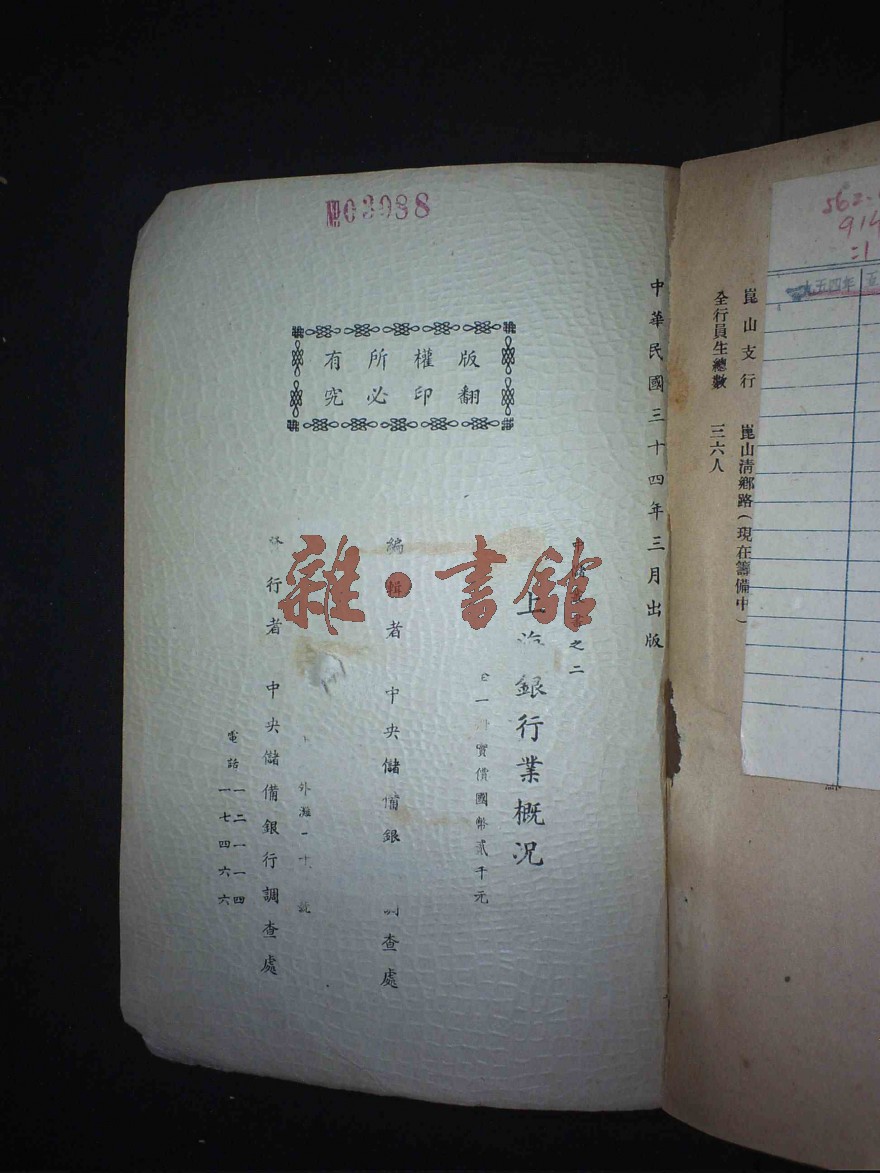 崑山支行 崑山清鄉路(現在籌備中)
全行員生總數 三六人
一九五四年
№03988
中華民國三十四年三月出版
版權所有
翻印必究
之二
上海銀行業概況
實價國幣貳千元
編輯者 中央儲備銀 調查處
外灘
行者 中央儲備銀行調查處
電話 一二一一四
一七四六六
雜·書館